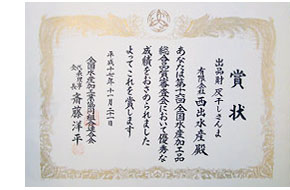 賞状
出品財 灰干しさんま
有限会社 西出水産 殿
あなたは第十七回全国水産加工品
総合品質審査会において優秀な
成績をおさめられました
よってこれを賞します
平成十七年十一月二十一日
全国水産加工業協同組合連合会
代表理事
会長 斎藤洋平